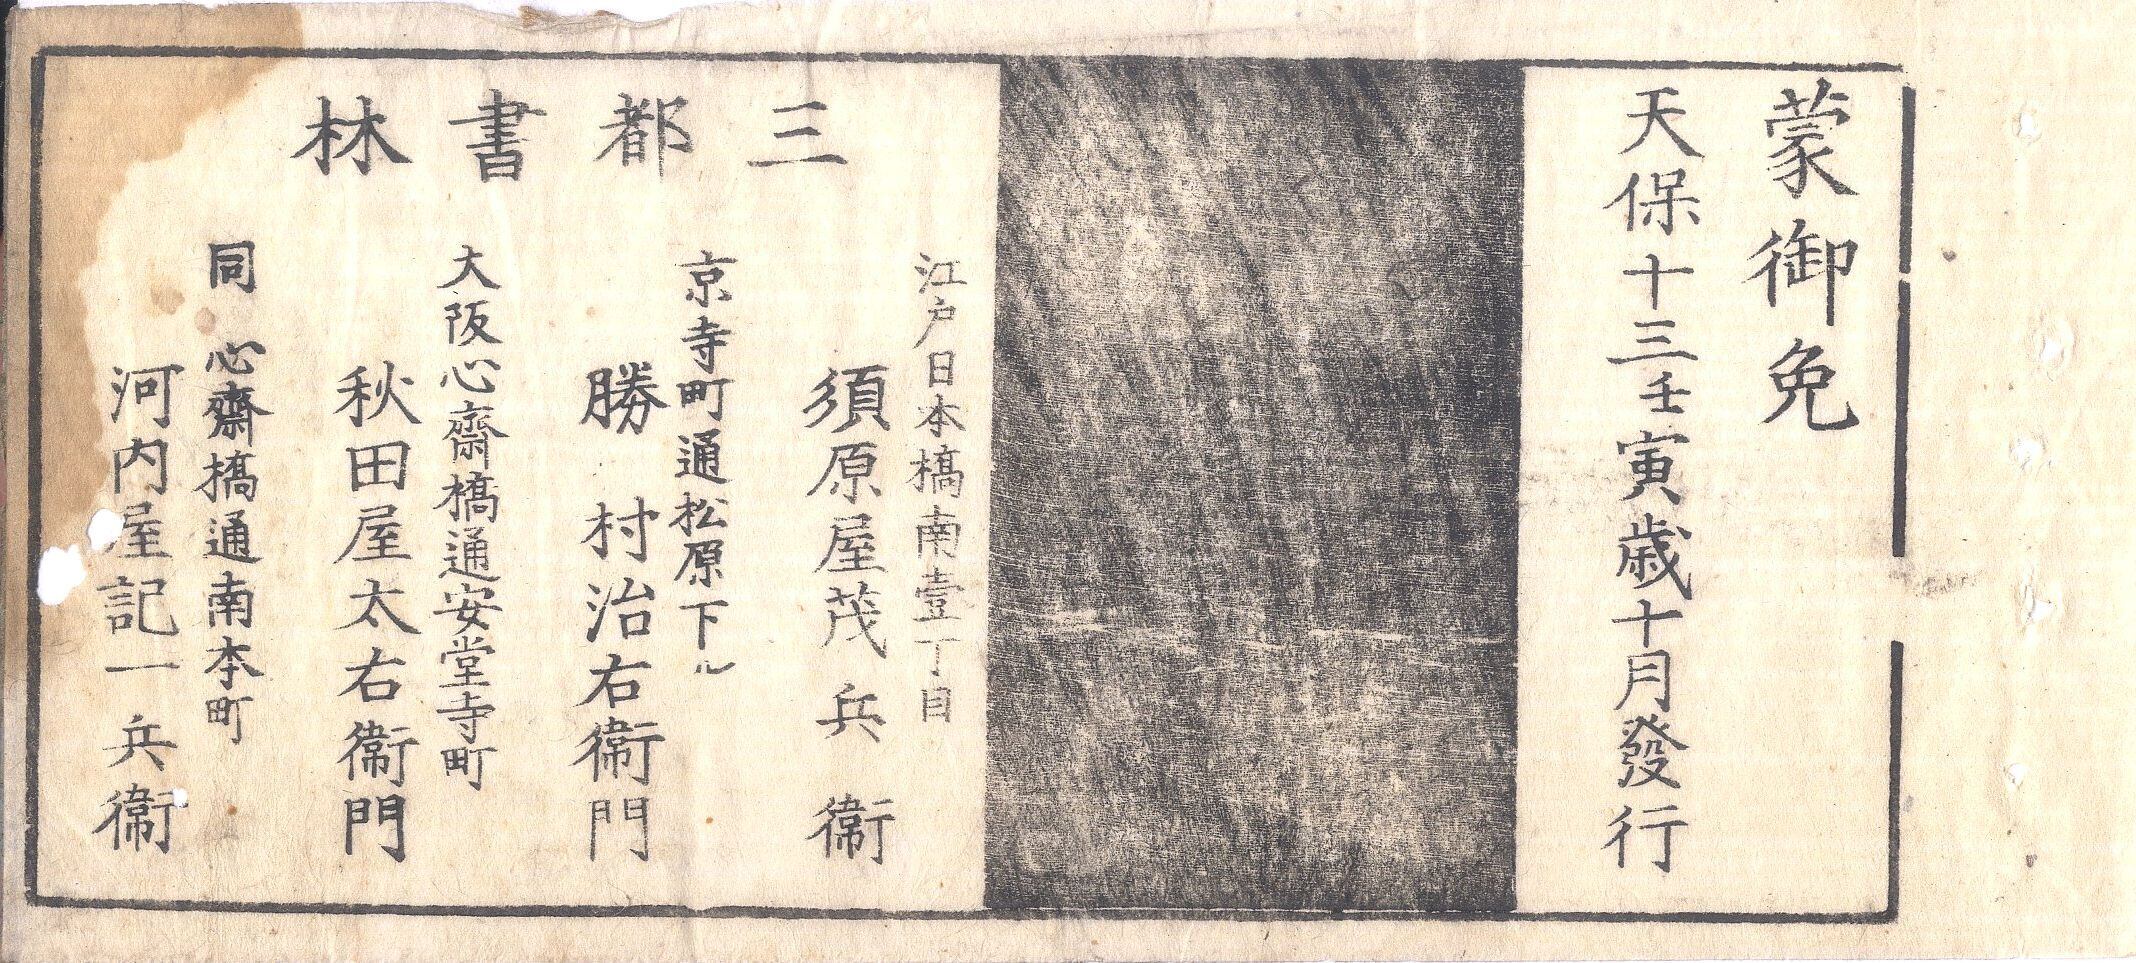 蒙御免
天保十三壬寅歳十月發行
三都書林
江戸日本橋南壹丁目
須原屋茂兵衞
京寺町通松原下ル
勝村治右衞門
大阪心齋橋通安堂寺町
秋田屋太右衞門
同心齋橋通南本町
河内屋記一兵衞